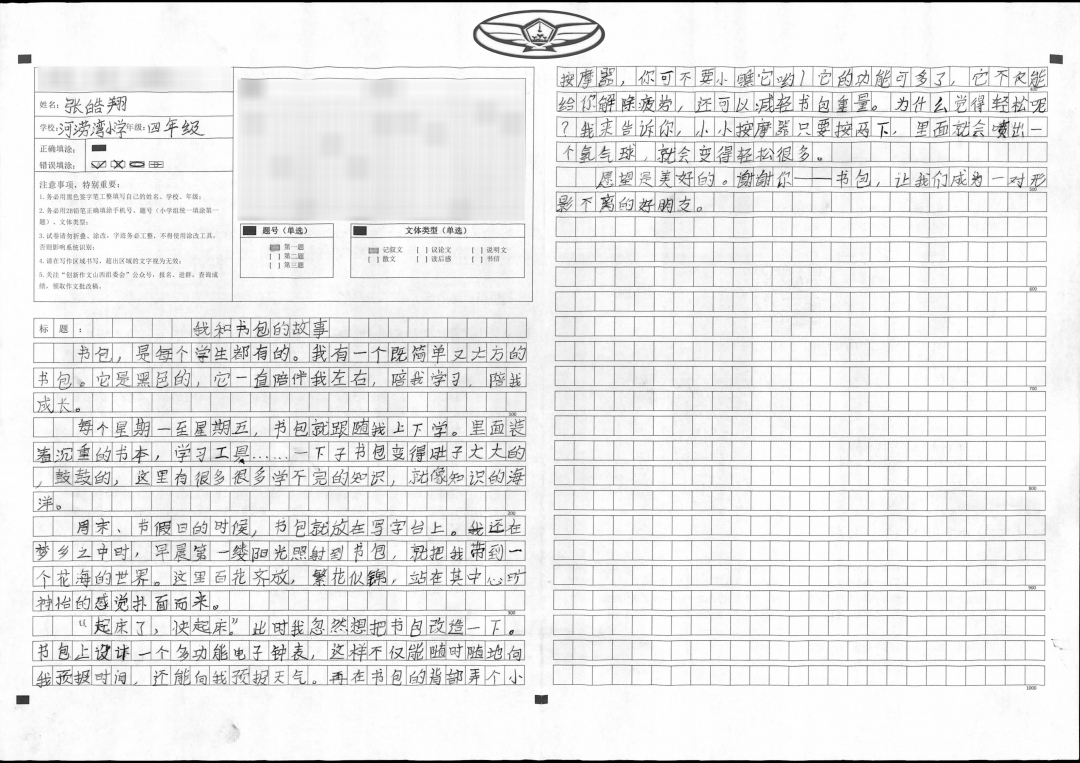 姓名：张皓翔
学校：河涝湾小学年级：四年级
正确填涂：
错误填涂：
注意事项，特别重要：
1. 务必用黑色签字笔工整填写自己的姓名、学校、年级；
2. 务必用2B铅笔正确填涂手机号、题号（小学组统一填涂第一
题）、文体类型；
3. 试卷请勿折叠、涂改，字迹务必工整，不得使用涂改工具，
否则影响系统识别；
4. 请在写作区域书写，超出区域的文字视为无效；
5. 关注“创新作文山西组委会”公众号，报名、进群、查询成
绩，领取作文批改稿。
题号（单选）
第一题
[ ] 第二题
[ ] 第三题
文体类型（单选）
记叙文 [ ] 议论文 [ ] 说明文
[ ] 散文 [ ] 读后感 [ ] 书信
标题： 我和书包的故事
书包，是每个学生都有的。我有一个既简单又大方的
书包。它是黑色的，它一直陪伴我左右，陪我学习，陪我
成长。
100
每个星期一至星期五，书包就跟随我上下学。里面装
着沉重的书本，学习工具……一下子书包变得肚子大大的
，鼓鼓的，这里有很多很多学不完的知识，就像知识的海
洋。
200
周末、节假日的时候，书包就放在写字台上。我还在
梦乡之中时，早晨第一缕阳光照射到书包，就把我带到一
个花海的世界。这里百花齐放，繁花似锦，站在其中心旷
神怡的感觉扑面而来。
300
“起床了，快起床。”此时我忽然想把书包改造一下。
书包上设计一个多功能电子钟表，这样不仅能随时随地向
我预报时间，还能向我预报天气。再在书包的背部弄个小
按摩器，你可不要小瞧它哟！它的功能可多了，它不仅能
400
给你解除疲劳，还可以减轻书包重量。为什么觉得轻松呢
？我来告诉你，小小按摩器只要按两下，里面就会喷出一
个氢气球，就会变得轻松很多。
愿望是美好的。谢谢你——书包，让我们成为一对形
500
影不离的好朋友。
600
700
800
900
1000